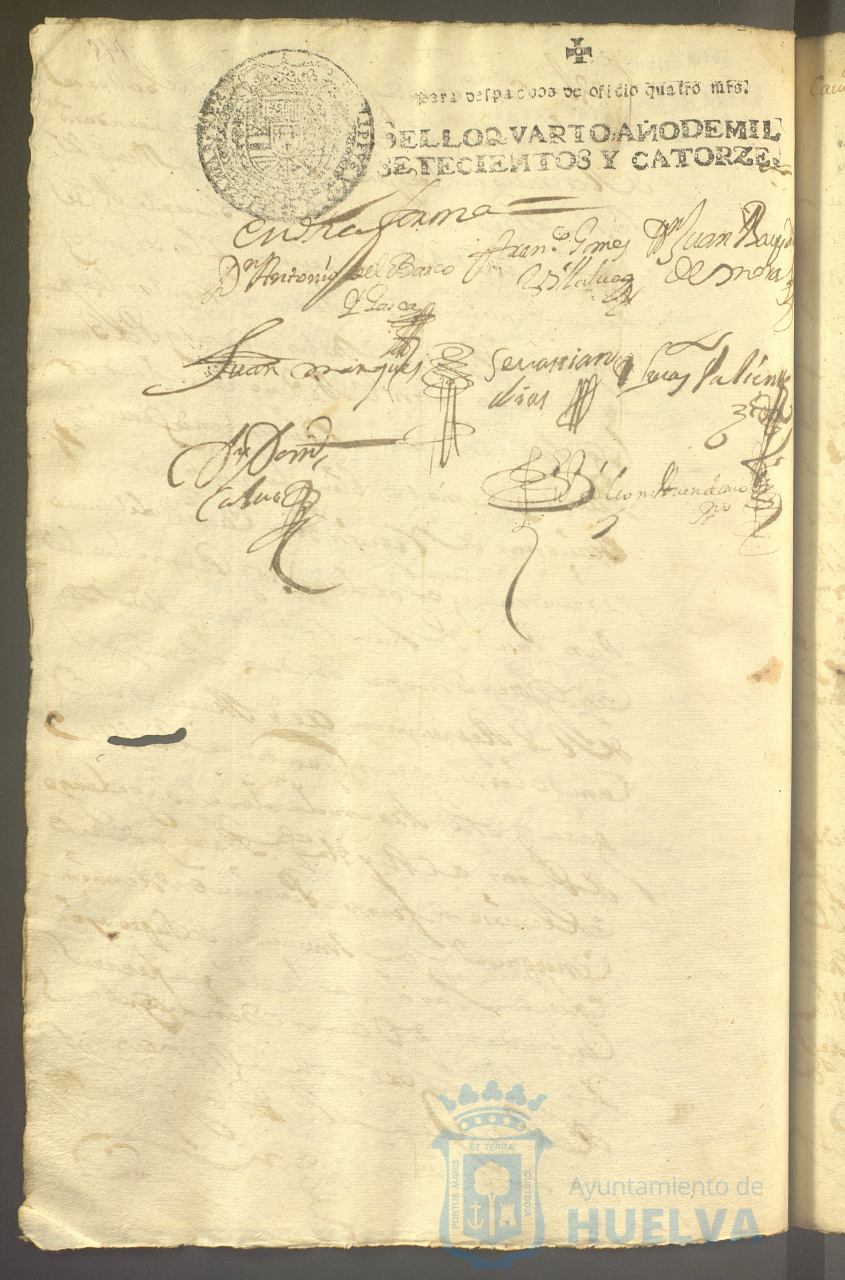 para despachos de oficio quatro mrs.
SELLO QVARTO, AÑO DE MIL
SETECIENTOS Y CATORZE.
en dha forma
Dn Antonio del Barco
y Gasca
Franco Gomes
Villalua
Dn Juan Baup
de mora
Juan marques
Sevastian
dias
Lucas Valien
Dn Domo
Calvo
ET TERRÆ
PORTUS MARIS
CUSTODIA
Ayuntamiento de
HUELVA